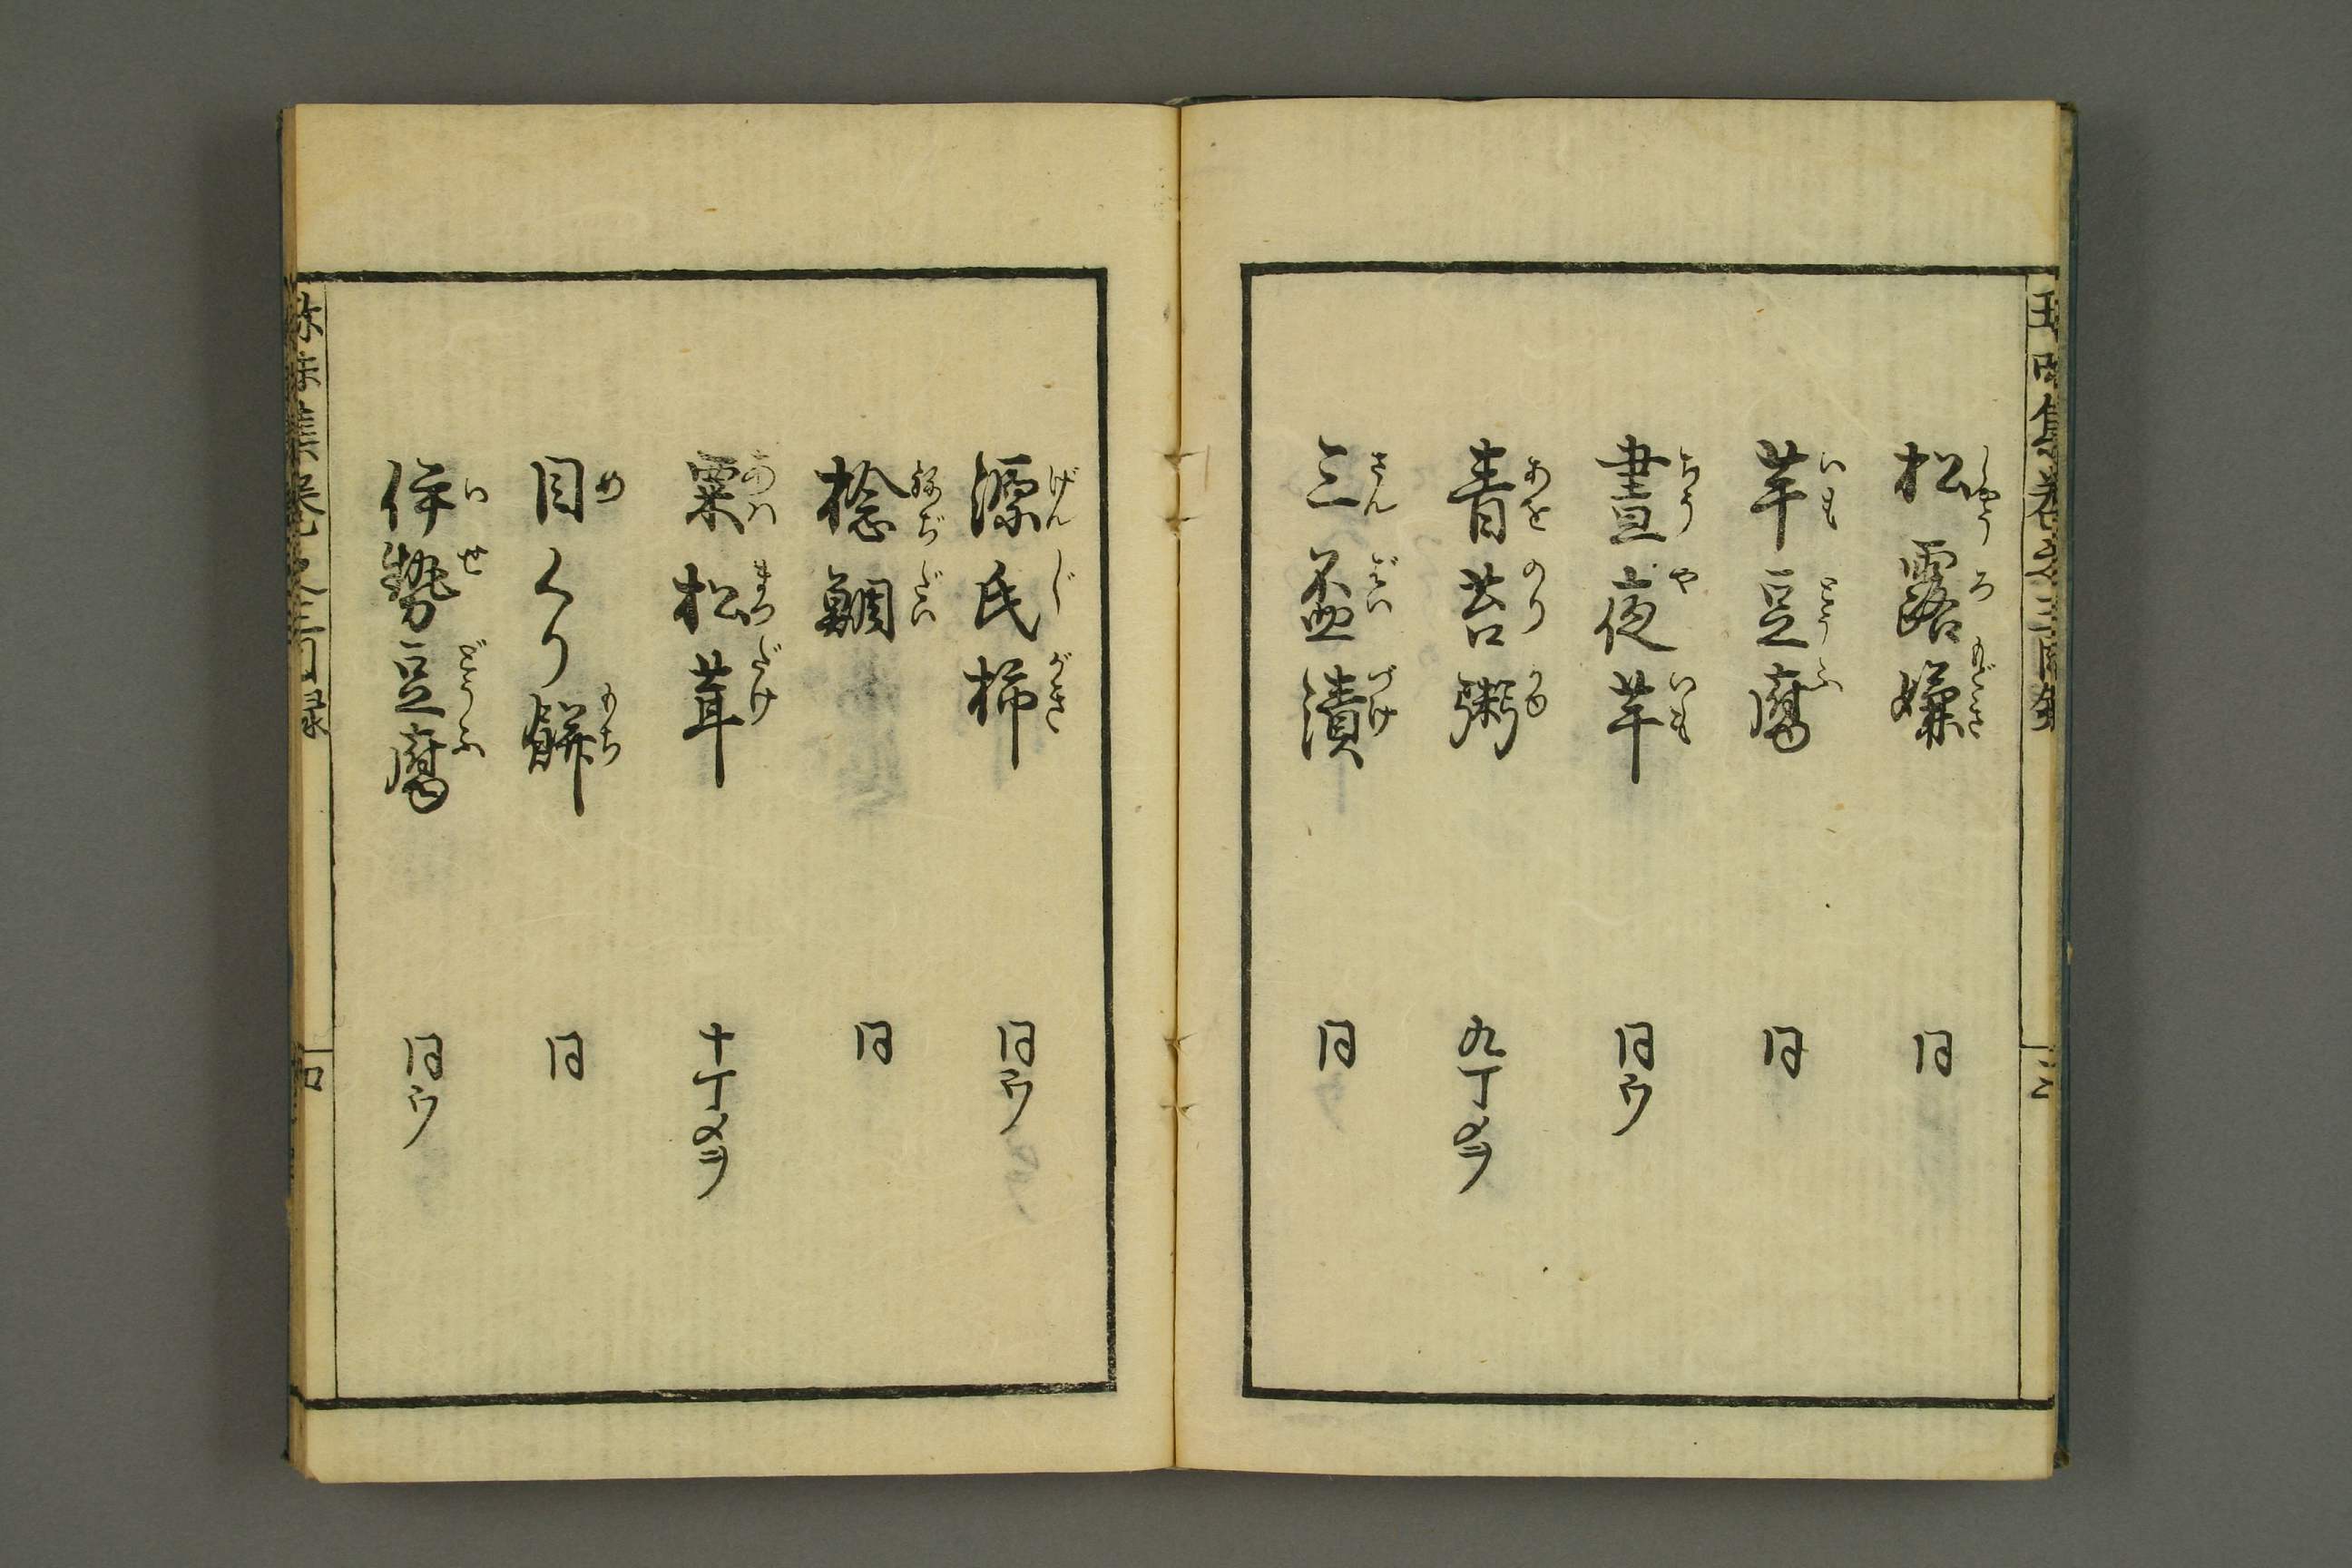 松露嫌 同
しやうろもどき
芋豆腐 同
いもとうふ
晝夜芋 同ウ
ちうやいも
青苔粥 九丁メヲ
あをのりがゆ
三盃漬 同
さんばいづけ
源氏柿 同ウ
げんじがき
捻鯛 同
ねぢだい
粟松茸 十丁メヲ
あハまつだけ
目くり餅 同
め もち
伊勢豆腐 同ウ
いせどうふ
珍味集巻之三目録